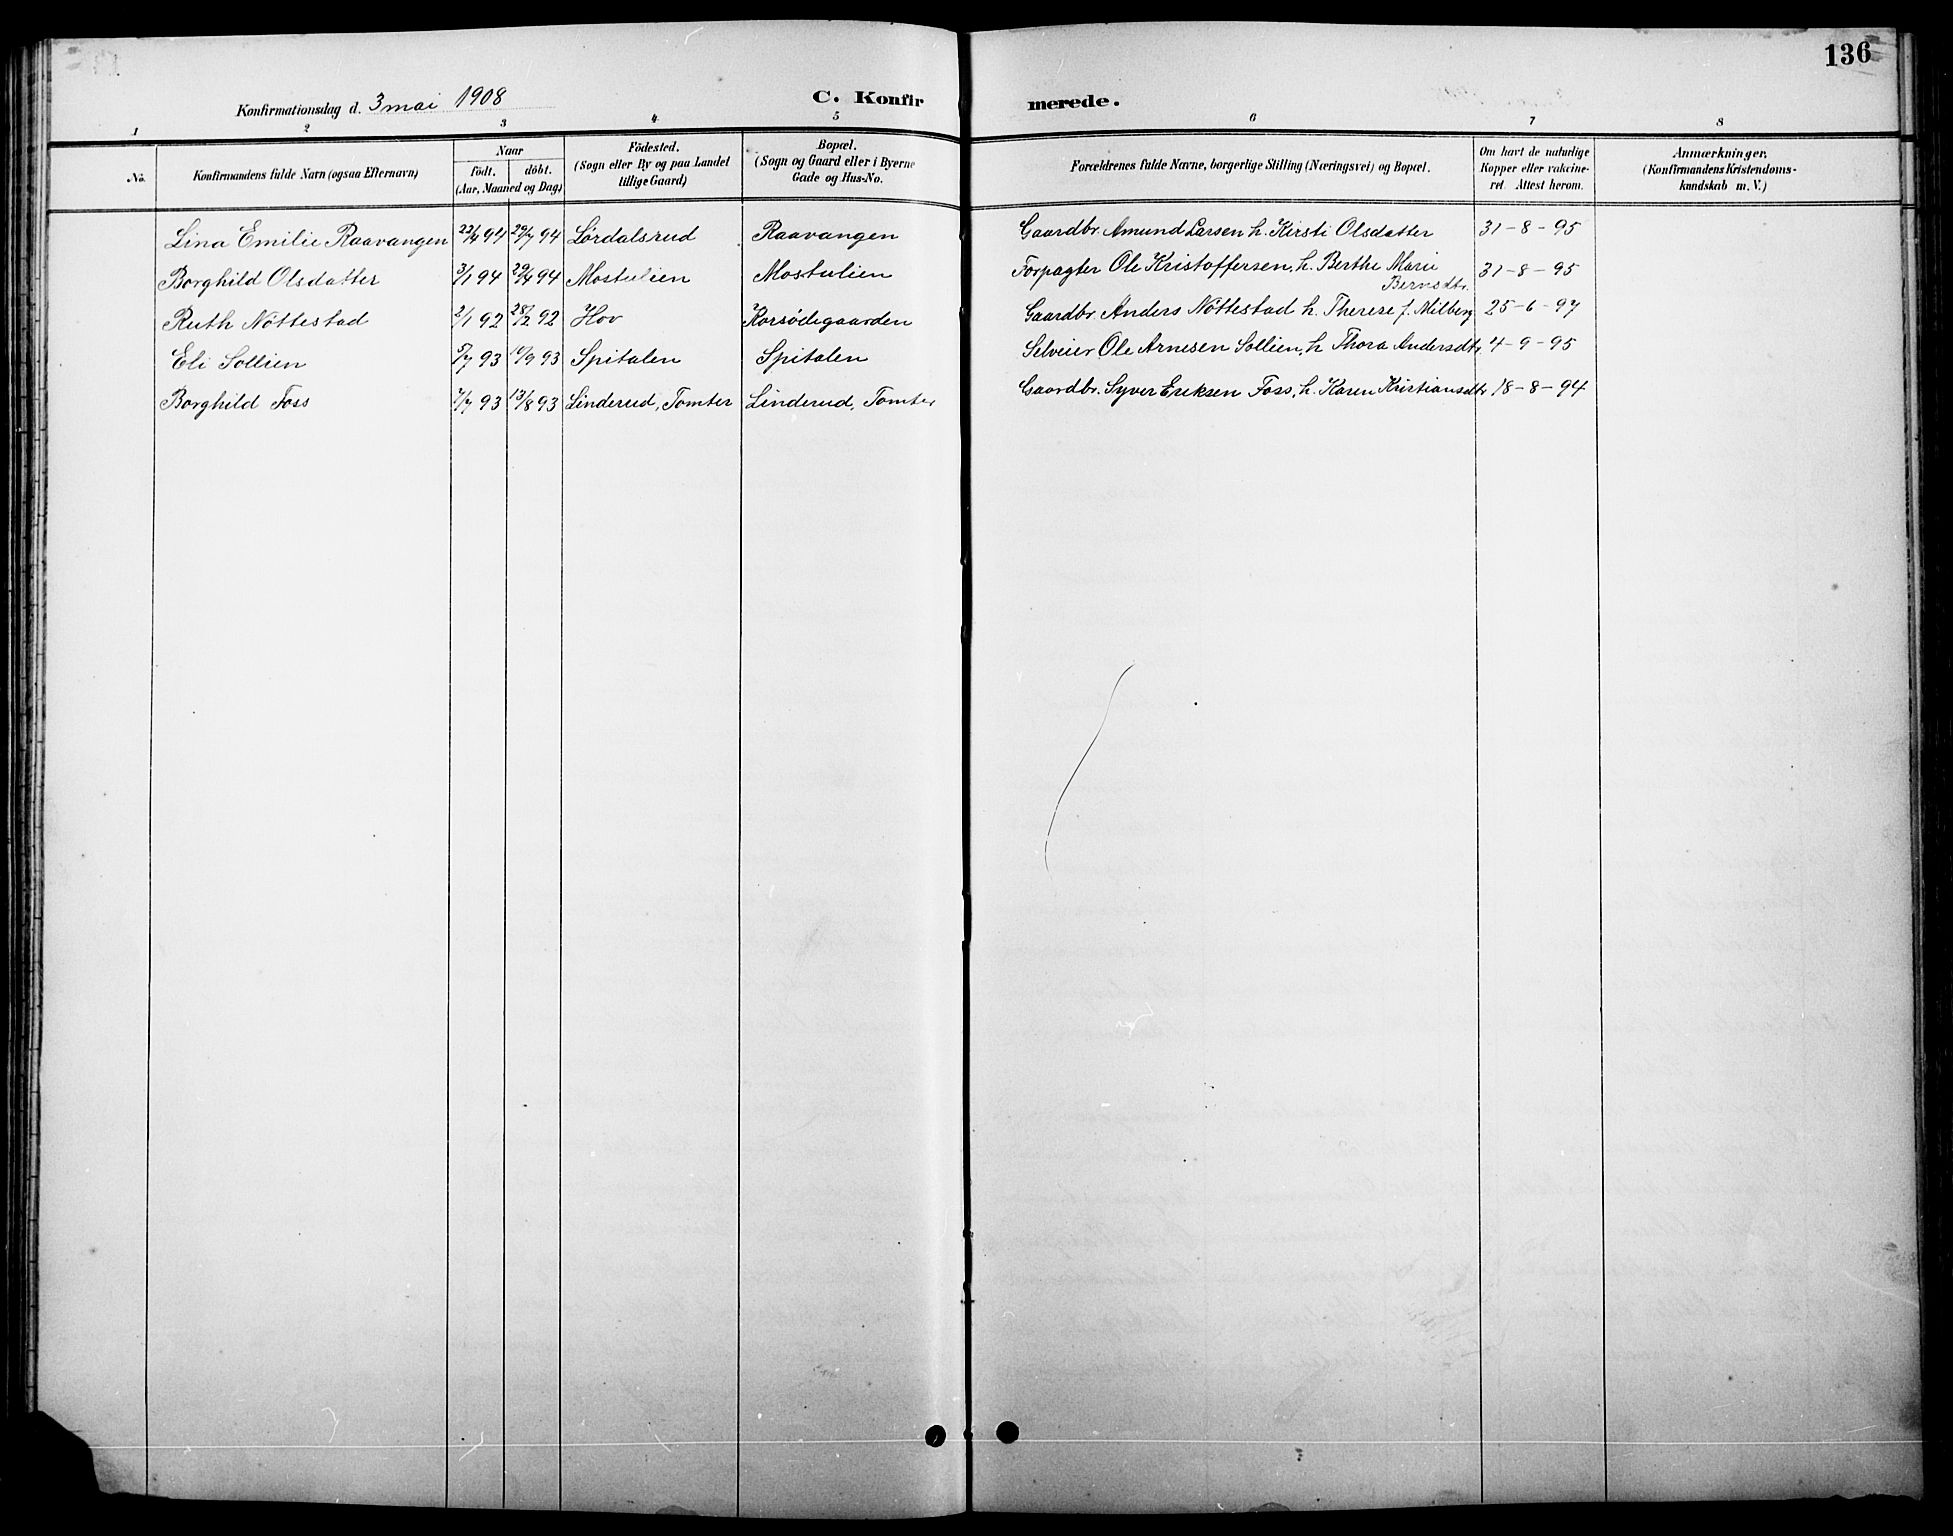 136
Konfirmationsdag d. 3 mai 1908
C. Konfir merede.
1 2 3 4 5 6 7 8
No.
Konfirmandens fulde Navn (ogsaa Efternavn)
Naar
födt. döbt.
(Aar, Maaned og Dag)
Födested.
(Sogn eller By og paa Landet
tillige Gaard)
Bopæl.
(Sogn og Gaard eller i Byerne
Gade og Hus-No.
Forældrenes fulde Navne, borgerlige Stilling (Næringsvei) og Bopæl.
Om havt de naturlige
Kopper eller vakcine-
ret. Attest herom.
Anmærkninger.
(Konfirmandens Kristendoms-
kundskab m. V.)
Lina Emilie Raavangen 22/4 94 29/7 94 Lørdalsrud Raavangen Gaardbr. Amund Larsen h. Kirsti Olsdatter 31-8-95
Borghild Olsdatter 3/1 94 29/4 94 Mostulien Mostulien Forpagter Ole Kristoffersen, h. Berthe Marie Berntsdtr. 31-8-95
Ruth Nöttestad 2/1 92 28/2 92 Hov Korsödegaarden Gaardbr. Anders Nöttestad h. Therese f. Milberg 25-6-97
Eli Sollien 5/7 93 10/9 93 Spitalen Spitalen Selveier Ole Arnesen Sollien, h Thora Andersdtr. 4-9-95
Borghild Foss 7/7 93 13/8 93 Linderud, Tomter Linderud, Tomter Gaardbr. Syver Eriksen Foss, h. Karen Kristiansdtr 18-8-94